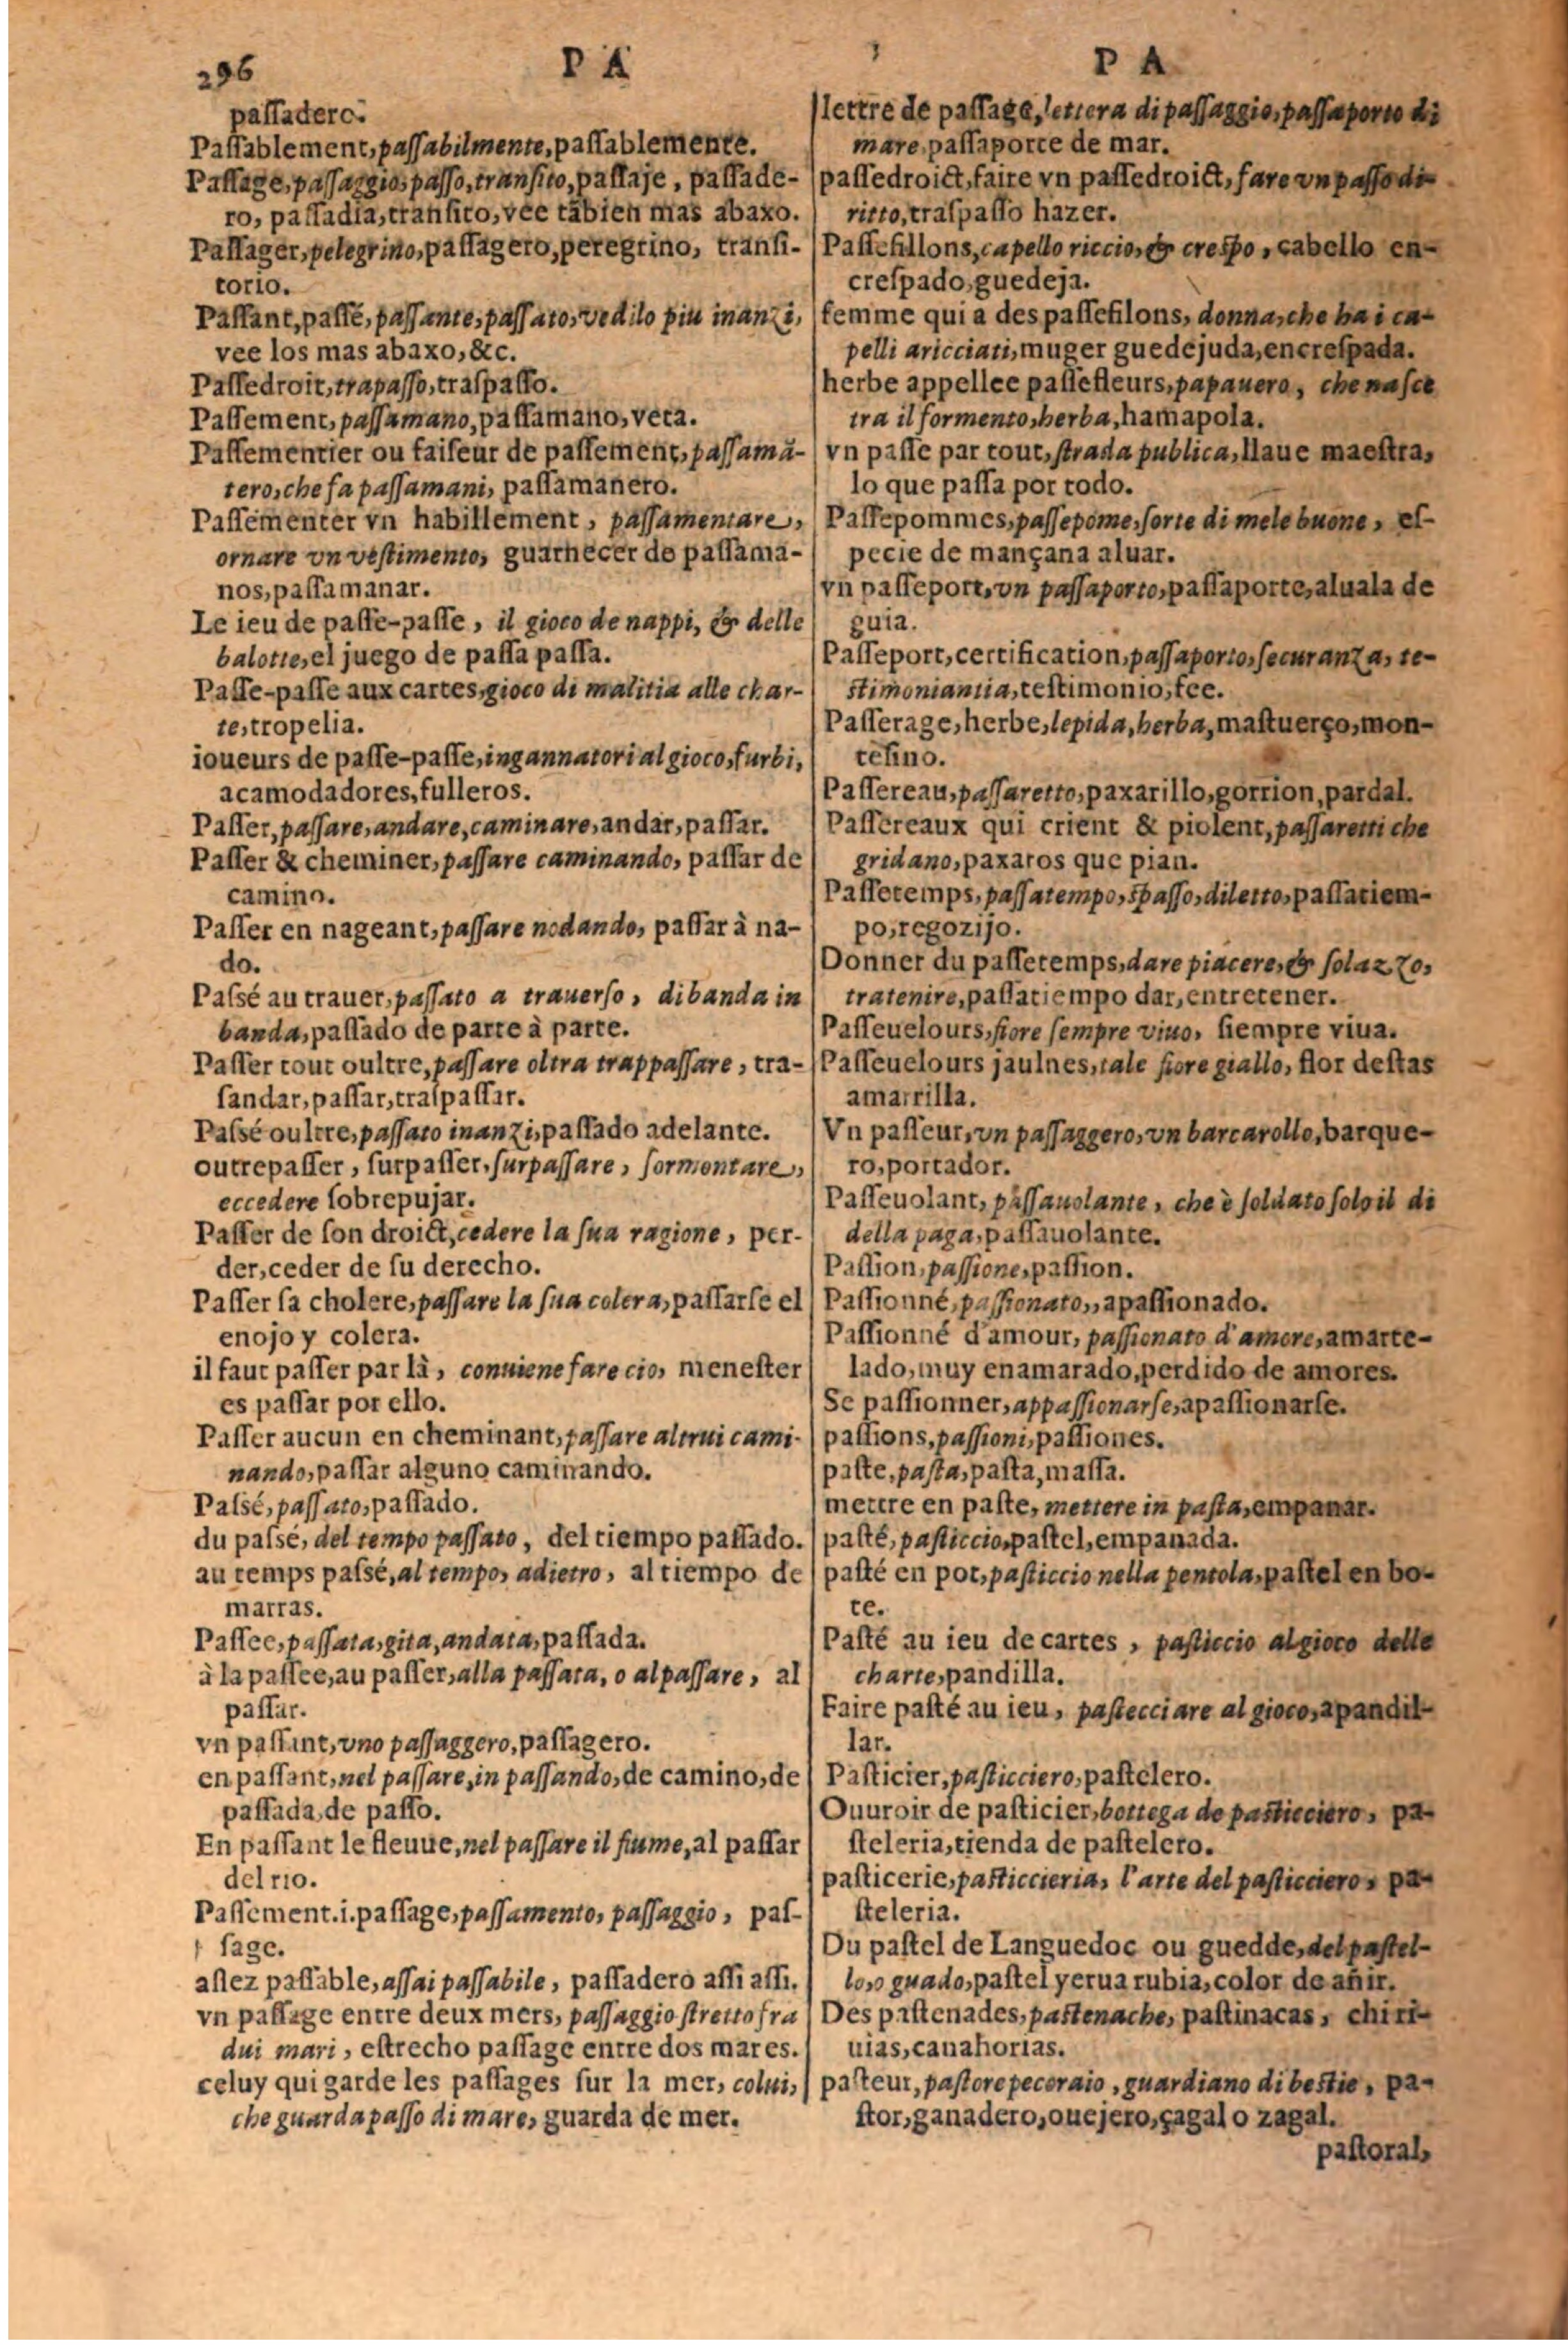 296
P A
paſſadero.
Paſſablement, paſſabilmente, paſſablemente.
Paſſage, paſſaggio, paſſo, tranſito, paſſaje, paſſade-
ro, paſſadia, tranſito, vee tãbien mas abaxo.
Paſſager, pelegrino, paſſagero, peregrino, tranſi-
torio.
Paſſant, paſſé, paſſante, paſſato, vedilo piu inanzi,
vee los mas abaxo, &c.
Paſſedroit, trapaſſo, traſpaſſo.
Paſſement, paſſamano, paſſamano, veta.
Paſſementier ou faiſeur de paſſement, paſſamã-
tero, che fa paſſamani, paſſamanero.
Paſſementer vn habillement, paſſamentare,
ornare vn veſtimento, guarnecer de paſſama-
nos, paſſamanar.
Le ieu de paſſe-paſſe, il gioco de nappi, & delle
balotte, el juego de paſſa paſſa.
Paſſe-paſſe aux cartes, gioco di malitia alle char-
te, tropelia.
ioueurs de paſſe-paſſe, ingannatori al gioco, furbi,
acamodadores, fulleros.
Paſſer, paſſare, andare, caminare, andar, paſſar.
Paſſer & cheminer, paſſare caminando, paſſar de
camino.
Paſſer en nageant, paſſare nodando, paſſar à na-
do.
Paſsé au trauer, paſſato a trauerſo, di banda in
banda, paſſado de parte à parte.
Paſſer tout oultre, paſſare oltra trappaſſare, tra-
ſandar, paſſar, traſpaſſar.
Paſsé oultre, paſſato inanzi, paſſado adelante.
outrepaſſer, ſurpaſſer, ſurpaſſare, ſormontare,
eccedere ſobrepujar.
Paſſer de ſon droict, cedere la ſua ragione, per-
der, ceder de ſu derecho.
Paſſer ſa cholere, paſſare la ſua colera, paſſarſe el
enojo y colera.
il faut paſſer par là, conuiene fare cio, meneſter
es paſſar por ello.
Paſſer aucun en cheminant, paſſare altrui cami-
nando, paſſar alguno caminando.
Paſsé, paſſato, paſſado.
du paſsé, del tempo paſſato, del tiempo paſſado.
au temps paſsé, al tempo, adietro, al tiempo de
marras.
Paſſee, paſſata, gita, andata, paſſada.
à la paſſee, au paſſer, alla paſſata, o al paſſare, al
paſſar.
vn paſſant, vno paſſaggero, paſſagero.
en paſſant, nel paſſare, in paſſando, de camino, de
paſſada, de paſſo.
En paſſant le fleuue, nel paſſare il fiume, al paſſar
del rio.
Paſſement. i. paſſage, paſſamento, paſſaggio, paſ-
ſage.
aſſez paſſable, aſſai paſſabile, paſſadero aſſi aſſi.
vn paſſage entre deux mers, paſſaggio ſtretto fra
dui mari, eſtrecho paſſage entre dos mares.
celuy qui garde les paſſages ſur la mer, colui,
che guarda paſſo di mare, guarda de mer.
P A
lettre de paſſage, lettera di paſſaggio, paſſaporto di
mare, paſſaporte de mar.
paſſedroict, faire vn paſſedroict, fare vn paſſo di-
ritto, traſpaſſo hazer.
Paſſefillons, capello riccio, & creſpo, cabello en-
creſpado, guedeja.
femme qui a des paſſefilons, donna, che ha i ca-
pelli aricciati, muger guedejuda, encreſpada.
herbe appellee paſſefleurs, papauero, che naſce
tra il formento, herba, hamapola.
vn paſſe par tout, ſtrada publica, llaue maeſtra,
lo que paſſa por todo.
Paſſepommes, paſſepome, ſorte di mele buone, eſ-
pecie de mançana aluar.
vn paſſeport, vn paſſaporto, paſſaporte, aluala de
guia.
Paſſeport, certification, paſſaporto, ſecuranza, te-
ſtimoniantia, teſtimonio, fee.
Paſſerage, herbe, lepida, herba, maſtuerço, mon-
teſino.
Paſſereau, paſſaretto, paxarillo, gorrion, pardal.
Paſſereaux qui crient & piolent, paſſaretti che
gridano, paxaros que pian.
Paſſetemps, paſſatempo, ſpaſſo, diletto, paſſatiem-
po, regozijo.
Donner du paſſetemps, dare piacere, & ſolazzo,
tratenire, paſſatiempo dar, entretener.
Paſſeuelours, fiore ſempre viuo, ſiempre viua.
Paſſeuelours jaulnes, tale fiore giallo, flor deſtas
amarrilla.
Vn paſſeur, vn paſſaggero, vn barcarollo, barque-
ro, portador.
Paſſeuolant, paſſauolante, che è ſoldato ſolo il di
della paga, paſſauolante.
Paſſion, paſſione, paſſion.
Paſſionné, paſſionato,, apaſſionado.
Paſſionné d'amour, paſſionato d'amore, amarte-
lado, muy enamarado, perdido de amores.
Se paſſionner, appaſſionarſe, apaſſionarſe.
paſſions, paſſioni, paſſiones.
paſte, paſta, paſta, maſſa.
mettre en paſte, mettere in paſta, empanar.
paſté, paſticcio, paſtel, empanada.
paſté en pot, paſticcio nella pentola, paſtel en bo-
te.
Paſté au ieu de cartes, paſticcio al gioco delle
charte, pandilla.
Faire paſté au ieu, paſtecciare al gioco, apandil-
lar.
Paſticier, paſticciero, paſtelero.
Ouuroir de paſticier, bottega de paſticciero, pa-
ſteleria, tienda de paſtelero.
paſticerie, paſticcieria, l'arte del paſticciero, pa-
ſteleria.
Du paſtel de Languedoc ou guedde, del paſtel-
lo, o guado, paſtel yerua rubia, color de añir.
Des paſtenades, paſtenache, paſtinacas, chiri-
uias, canahorias.
paſteur, paſtore pecoraio, guardiano di beſtie, pa-
ſtor, ganadero, ouejero, çagal o zagal.
paſtoral,